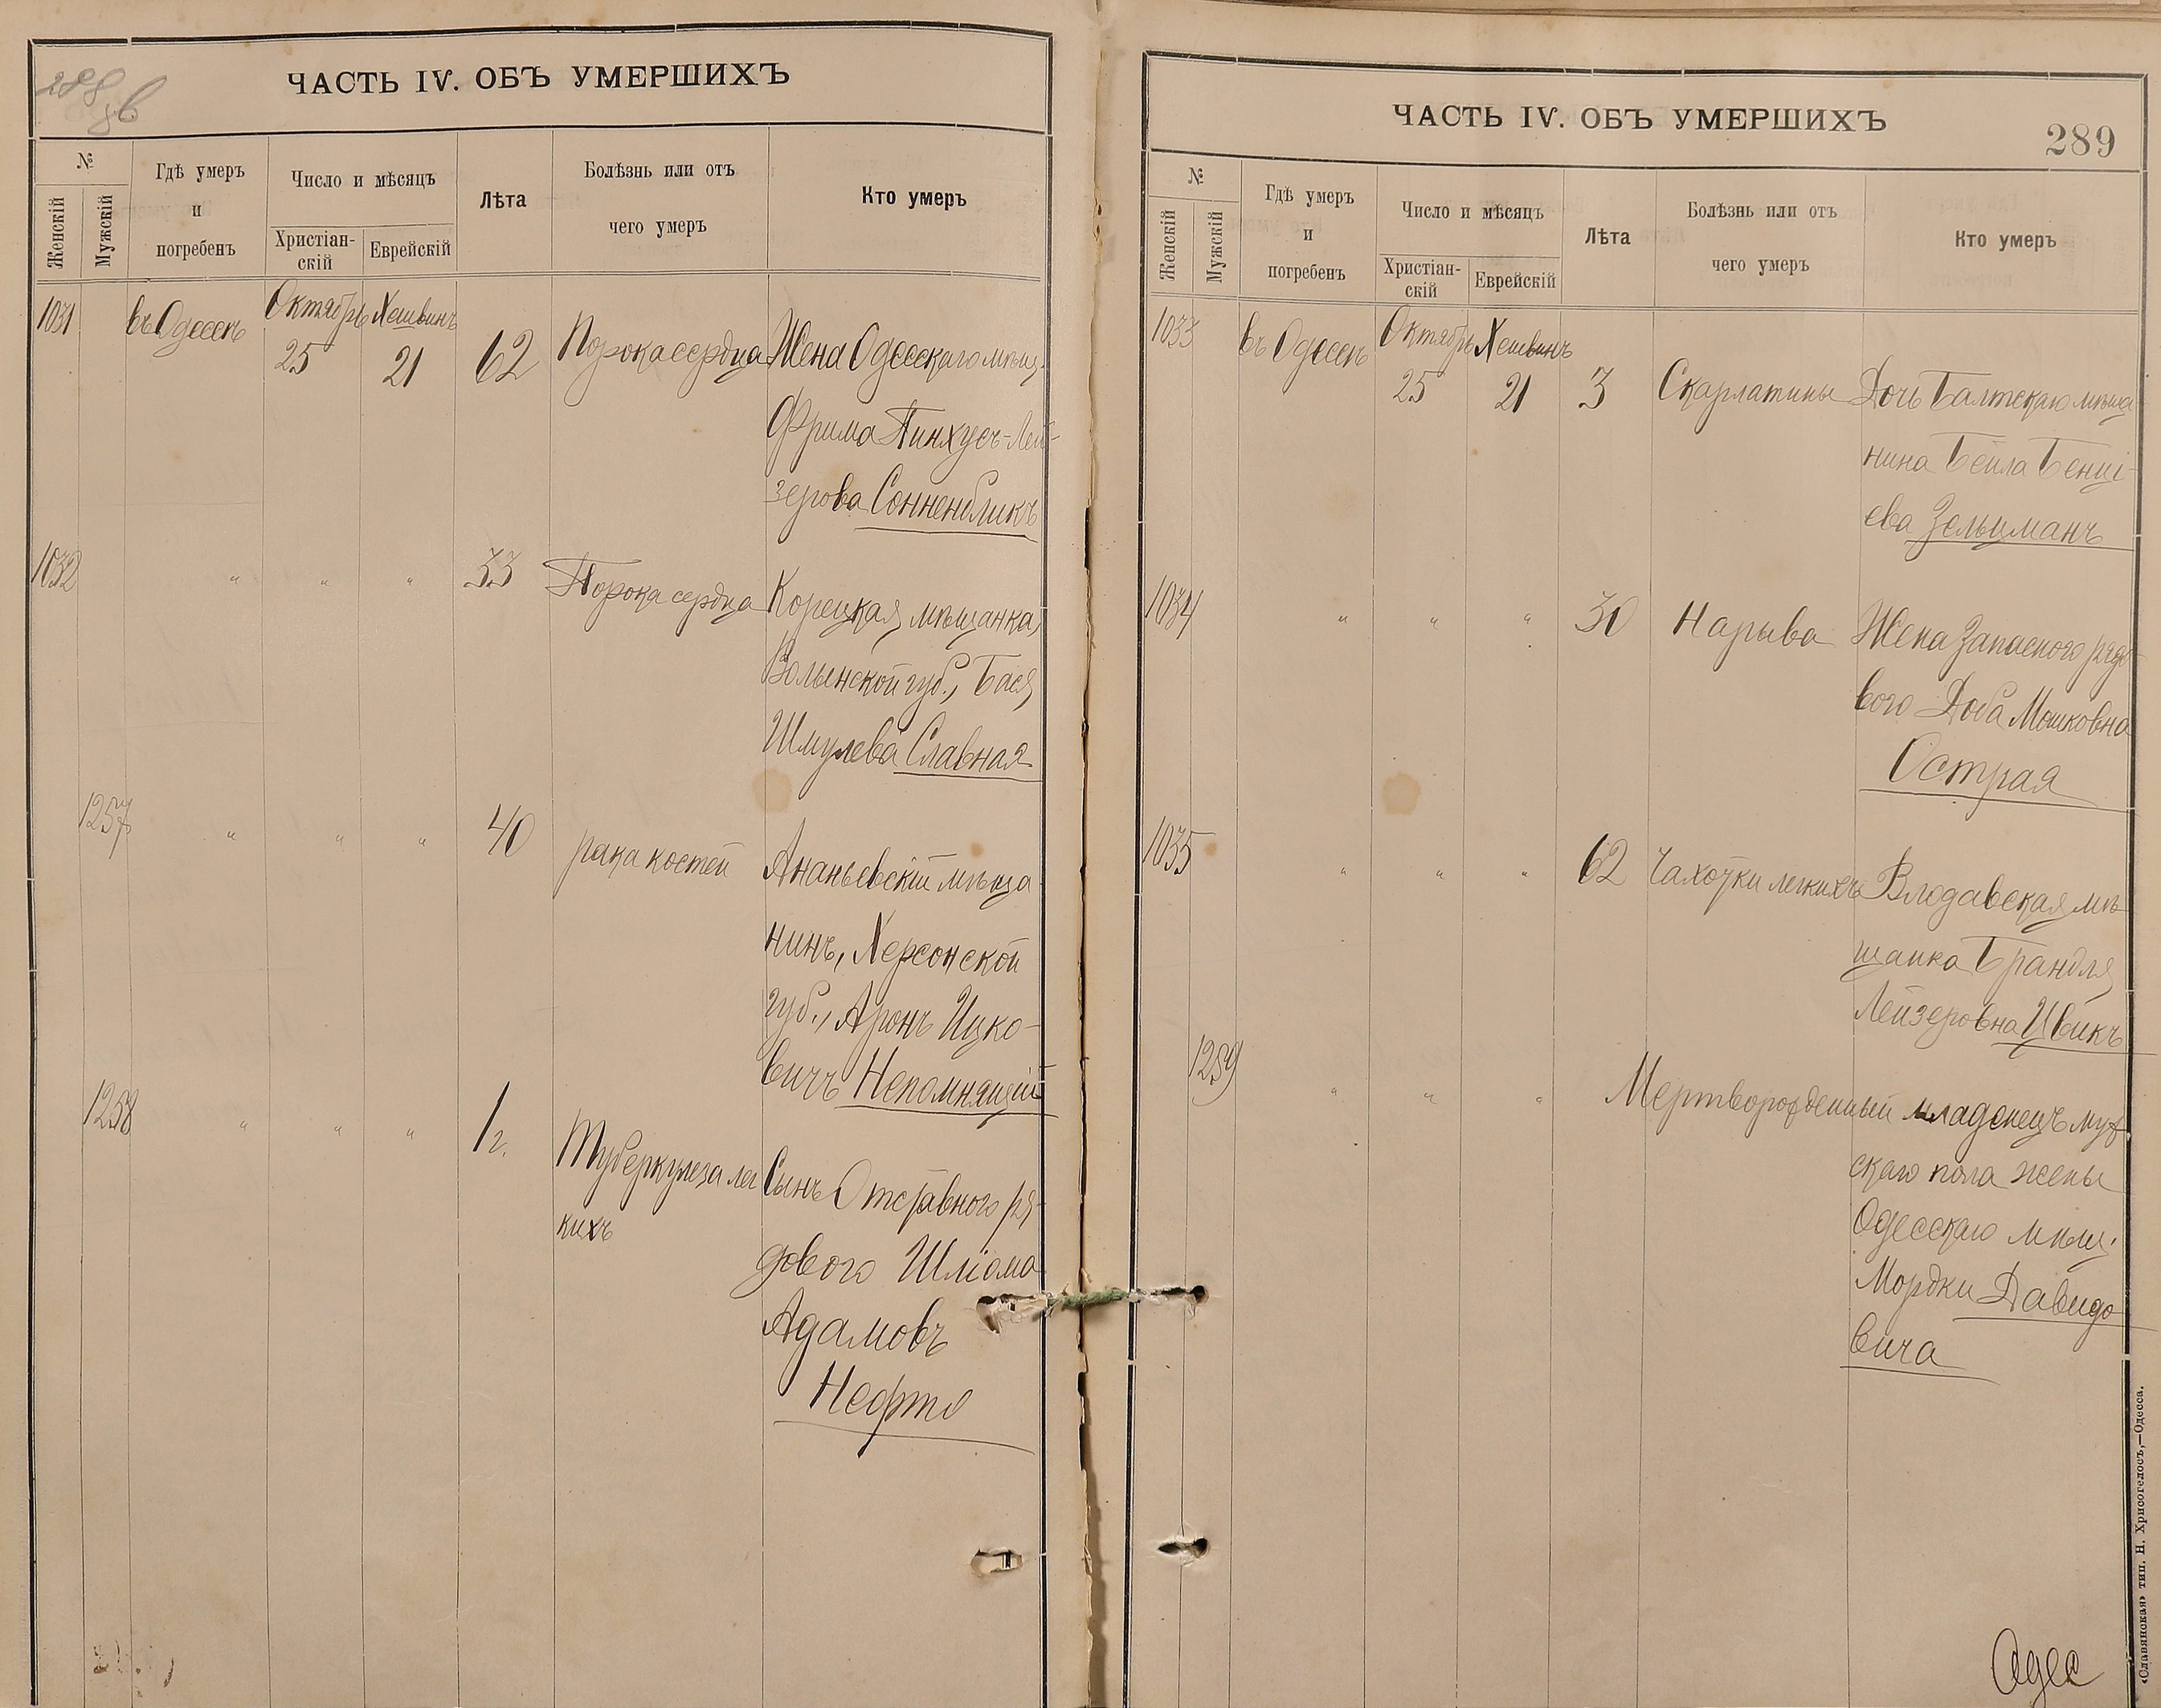 288
об
ЧАСТЬ IV. ОБЪ УМЕРШИХЪ
№
Женскій
Мужскій
Гдѣ умеръ
и
погребенъ
Число и мѣсяцъ
Христіан-
скій
Еврейскій
Лѣта
Болѣзнь или отъ
чего умеръ
Кто умеръ
1031 въ Одессѣ Октябрь Хешвинъ
25 21 62 Порока сердца Жена Одесскаго мѣщ.
Фрима Пинхусъ-Лей-
зерова Сонненбликъ
1032 " " " 33 Порока сердца Корецкая мѣщанка,
Волынской губ., Бася
Шмулева Славная
1257 " " " 40 рака костей Ананьевскій мѣща-
нинъ, Херсонской
губ., Аронъ Ицко-
вичъ Непомнящій
1258 " " " 1 г. Туберкулеза лег Сынъ Отставного ря-
кихъ
дового Шліома
Адамовъ
Нефто
ЧАСТЬ IV. ОБЪ УМЕРШИХЪ
289
№
Женскій
Мужскій
Гдѣ умеръ
и
погребенъ
Число и мѣсяцъ
Христіан-
скій
Еврейскій
Лѣта
Болѣзнь или отъ
чего умеръ
Кто умеръ
1033 въ Одессѣ Октябрь Хешвинъ
25 21 3 Скарлатины Дочь Балтскаго мѣща-
нина Бейла Бенці-
ева Зельцманъ
1034 " " " 30 Нарыва Жена Запасного рядо-
вого Доба Мошковна
Острая
1035 " " " 62 Чахотки легкихъ Влодавская мѣ-
щанка Брандля
Лейзеровна Цвикъ
1259 " " " Мертворожденный младенецъ муж
скаго пола жены
Одесскаго мѣщ.
Мордки Давидо
вича
Одес
«Славянская» тип. Н. Хрисогелосъ,—Одесса.